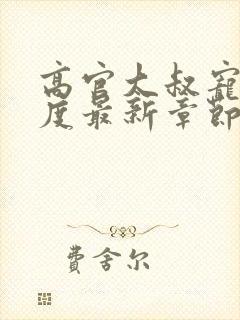 高官大叔寵
度最新章節
費舍尔